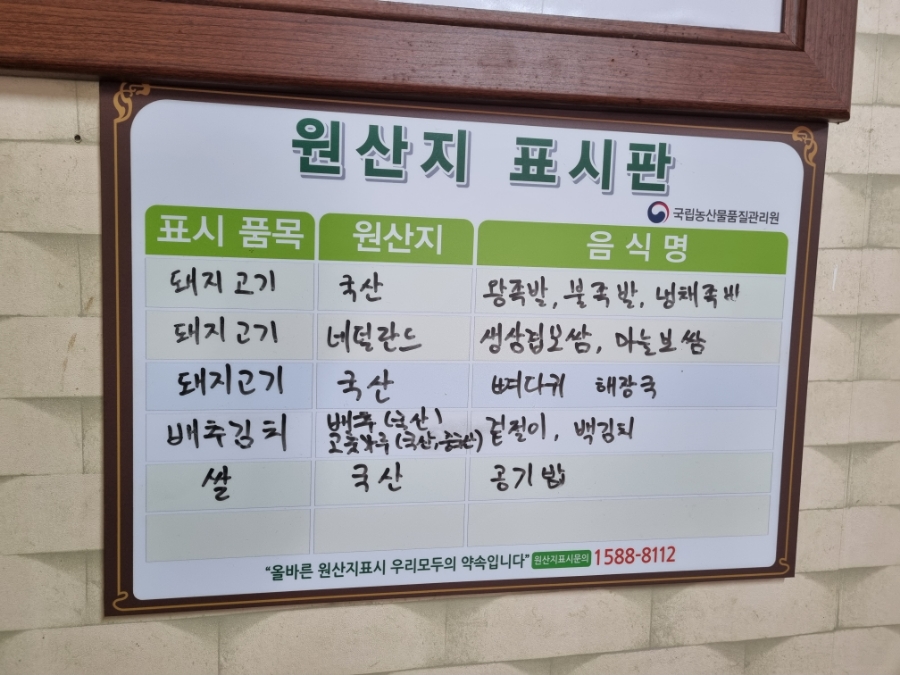 원산지 표시판
국립농산물품질관리원
표시 품목 원산지 음식명
돼지고기 국산 왕족발, 불족발, 냉채족발
돼지고기 네덜란드 생삼겹보쌈, 마늘보쌈
돼지고기 국산 뼈다귀 해장국
배추김치 배추(국산) 겉절이, 백김치
고춧가루(국산,중국산)
쌀 국산 공기밥
"올바른 원산지표시 우리모두의 약속입니다" 원산지표시문의 1588-8112